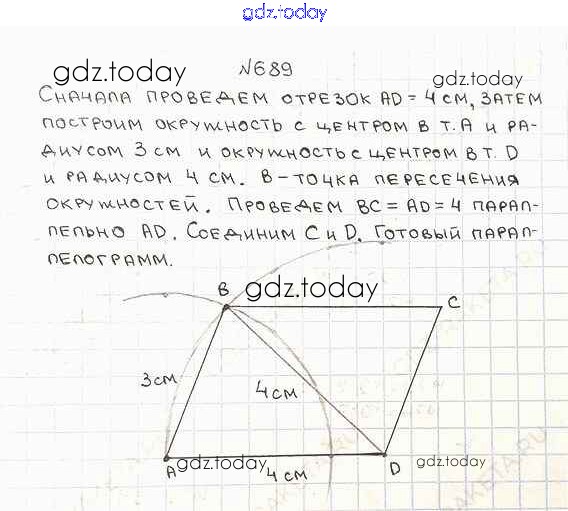 gdz.today
gdz.today
№689
gdz.today
СНАЧАЛА ПРОВЕДЕМ ОТРЕЗОК AD = 4 СМ, ЗАТЕМ
ПОСТРОИМ ОКРУЖНОСТЬ С ЦЕНТРОМ В Т.А И РА-
ДИУСОМ 3 СМ И ОКРУЖНОСТЬ С ЦЕНТРОМ В Т. D
И РАДИУСОМ 4 СМ. В – ТОЧКА ПЕРЕСЕЧЕНИЯ
ОКРУЖНОСТЕЙ. ПРОВЕДЕМ BC = AD = 4 ПАРАЛ-
ЛЕЛЬНО AD. СОЕДИНИМ С И D. ГОТОВЫЙ ПАРАЛ-
ЛЕЛОГРАММ.
B
gdz.today
C
3 см
4 см
A
gdz.today
4 см
D
gdz.today